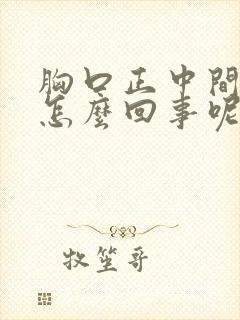 胸口正中間
怎麼回事呢
牧笙哥